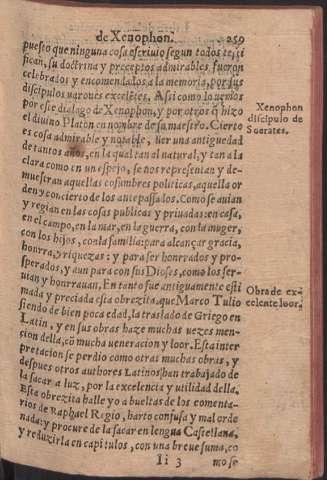 de Xenophon. 259
puesto que ninguna cosa escriuio segun todos testi
fican, su doctrina y preceptos admirables fueron
celebrados y encomendados a la memoria, por sus
discipulos varones excelẽtes. Assi como lo vemos
por este dialago de Xenophon, y por otros q̃ hizo
el diuino Platon en nombre de su maestro. Cierto
es cosa admirable y notable, uer una antiguedad
de tantos años, en la qual tan al natural, y tan a la
clara como en un espejo, se nos representan y de-
muestran aquellas costumbres politicas, aquella or
den y concierto de los antepassados. Como se auian
y regian en las cosas publicas y priuadas: en casa,
en el campo, en la mar, en la guerra, con la muger,
con los hijos, con la familia: para alcançar gracia,
honrra, y riquezas: y para ser honrados y pro-
sperados, y aun para con sus Dioses, como los ser-
uian y honrrauan. En tanto fue antiguamente esti
mada y preciada esta obrezita, que Marco Tulio
siendo de bien poca edad, la traslado de Griego en
Latin, y en sus obras haze muchas vezes men-
cion della, cõ mucha ueneracion y loor. Esta inter
pretacion se perdio como otras muchas obras, y
despues otros authores Latinos han trabajado de
la sacar a luz, por la excelencia y utilidad della.
Esta obrezita halle yo a bueltas de los comenta-
rios de Raphael Regio, harto confusa y mal orde
nada: y procure de la sacar en lengua Castellana,
y reduzirla en capitulos, con una breue suma, co
Ii 3 mo se
Xenophon
discipulo de
Socrates.
Obra de ex-
celente loor.